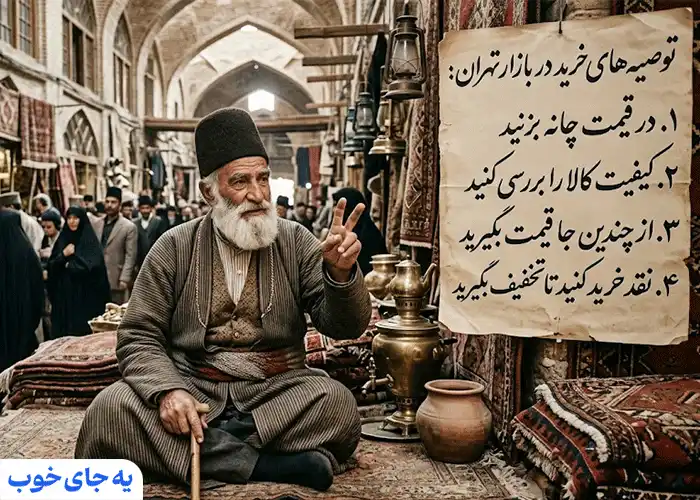 توصیه‌های خرید در بازار تهران:
۱. در قیمت چانه بزنید
۲. کیفیت کالا را بررسی کنید
۳. از چندین جا قیمت بگیرید
۴. نقد خرید کنید تا تخفیف بگیرید
یه جای خوب